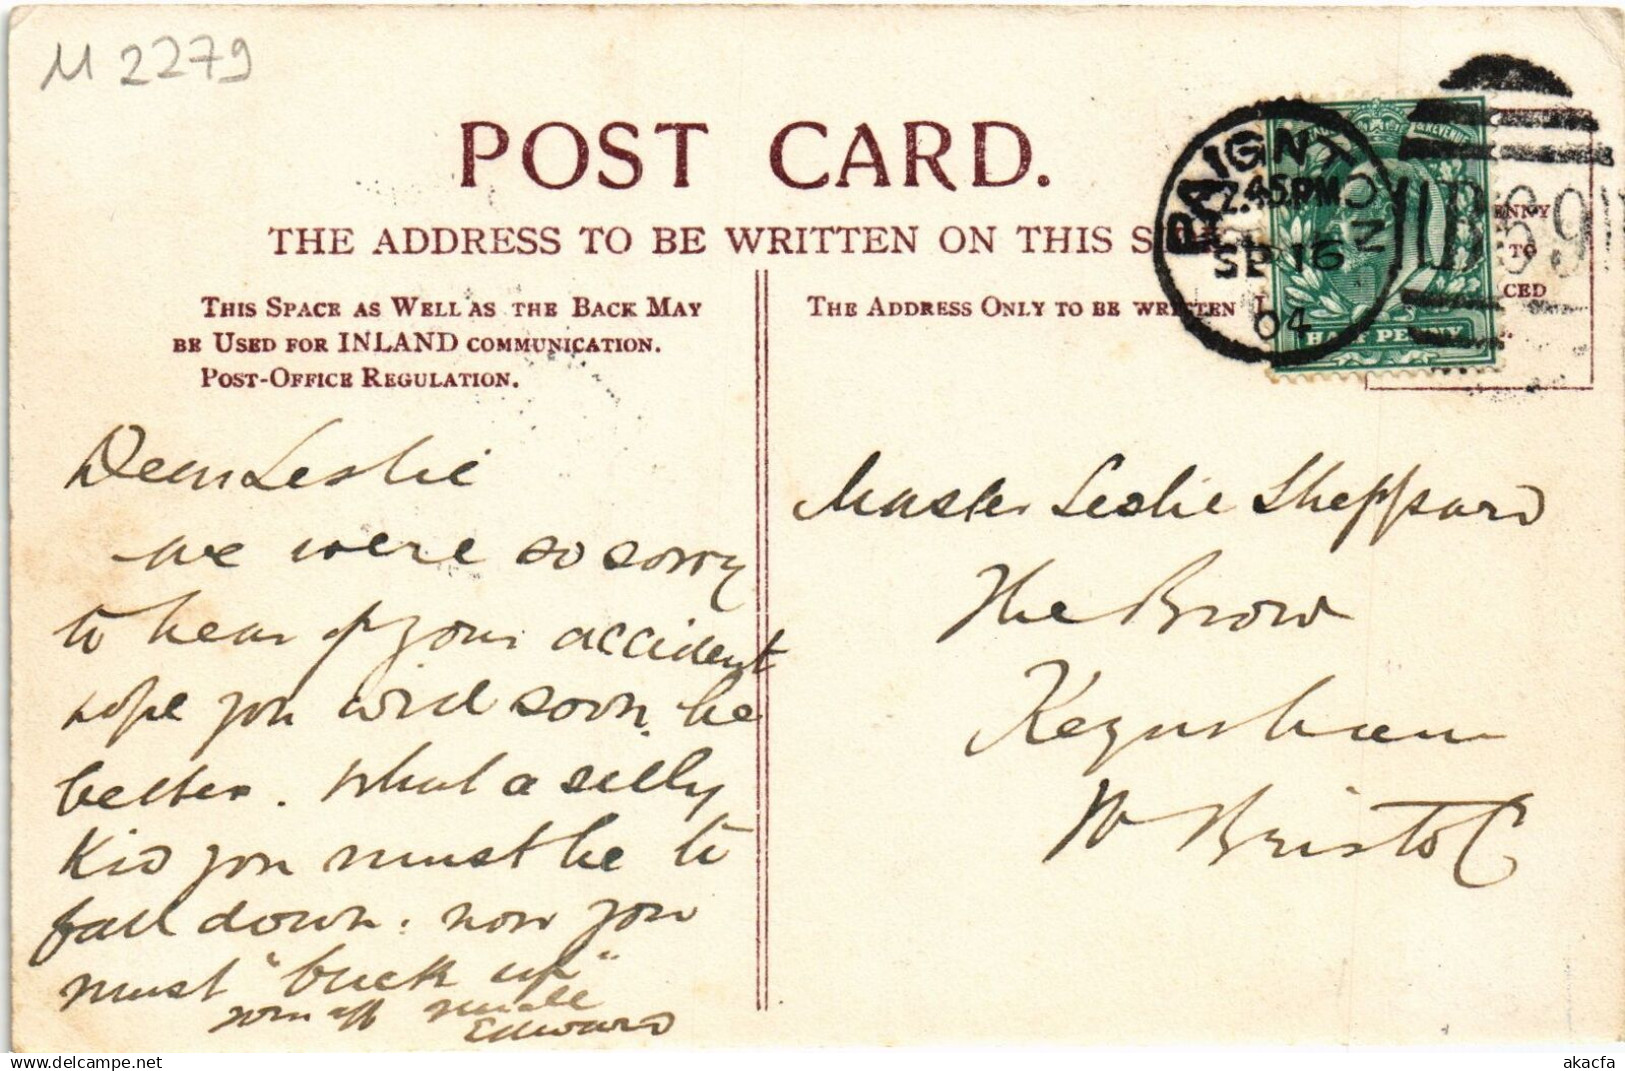 M 2279
POST CARD.
THE ADDRESS TO BE WRITTEN ON THIS S
THIS SPACE AS WELL AS THE BACK MAY
BE USED FOR INLAND COMMUNICATION.
POST-OFFICE REGULATION.
THE ADDRESS ONLY TO BE WRITTEN
PAIGNTON
2.45PM
SP 16
04
B69
& REVENUE
HALF PENNY
ENNY
TO
CED
Dear Leslie
we were so sorry
to hear of your accident
hope you will soon be
better. What a silly
Kid you must be to
fall down. now you
must "buck up"
your aff
Edward
Master Leslie Sheppard
The Brow
Keynsham
Nr Bristol
delcampe.net
akacfa